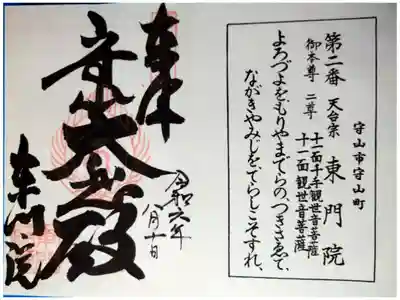 守山市守山町
第二番 天台宗 東門院
御本尊 二尊 十一面千手観世音菩薩
十一面観世音菩薩
よろづよをもりやまでらのつきさゑて、
ながきやみじをてらしこそすれ、
奉拝
令和六年
八月十日
大悲殿
東門院